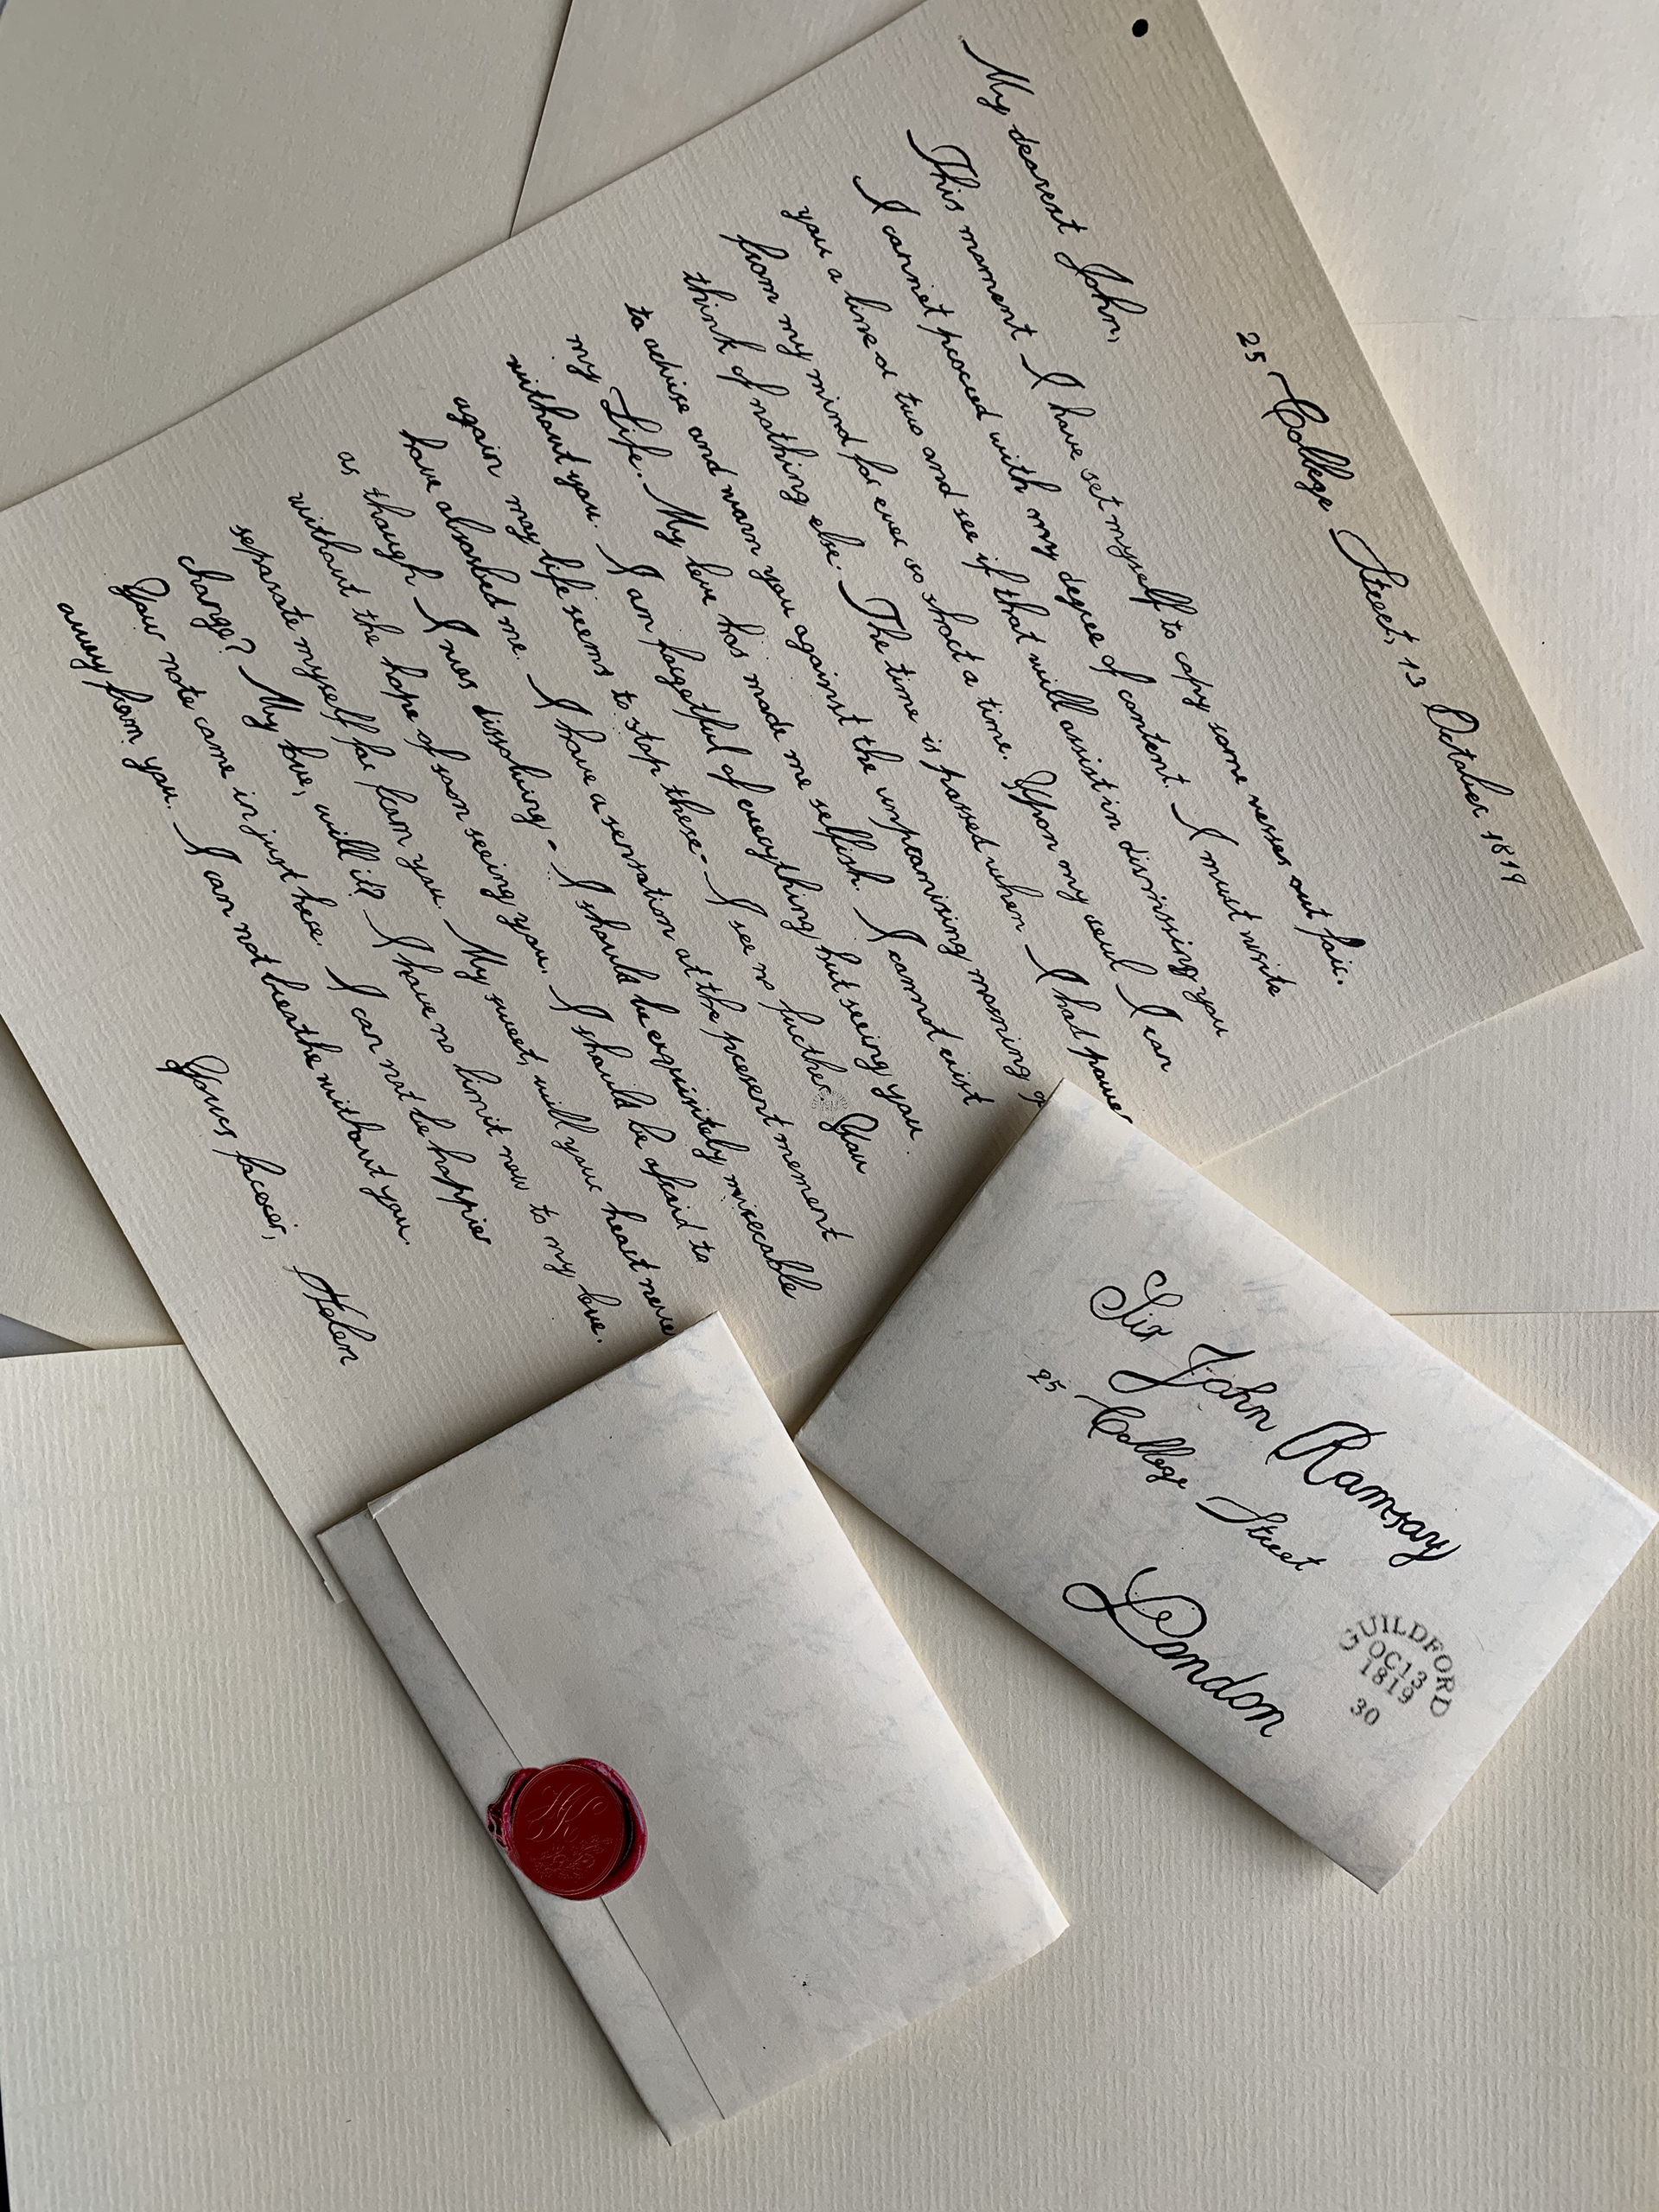 25 College Street, 13 October 1819
My dearest John,
This moment I have set myself to copy some verses out fair.
I cannot proceed with my degree of content. I must write
you a line or two and see if that will assist in dismissing you
from my mind for ever so short a time. Upon my soul I can
think of nothing else. The time is passed when I had power
to advise and warn you against the unpromising morning of
my Life. My love has made me selfish. I cannot exist
without you. I am forgetful of everything but seeing you
again my life seems to stop there - I see no further. You
have absorbed me. I have a sensation at the present moment
as though I was dissolving - I should be exquisitely miserable
without the hope of soon seeing you. I should be afraid to
separate myself far from you. My sweet, will your heart never
change? My love, will it? I have no limit now to my love.
Your note came in just here. I can not be happier
away from you. I can not breathe without you.
Yours forever,
Helen
Sir John Ramsay
25 College Street
London
GUILDFORD
OC13
1819
30
H